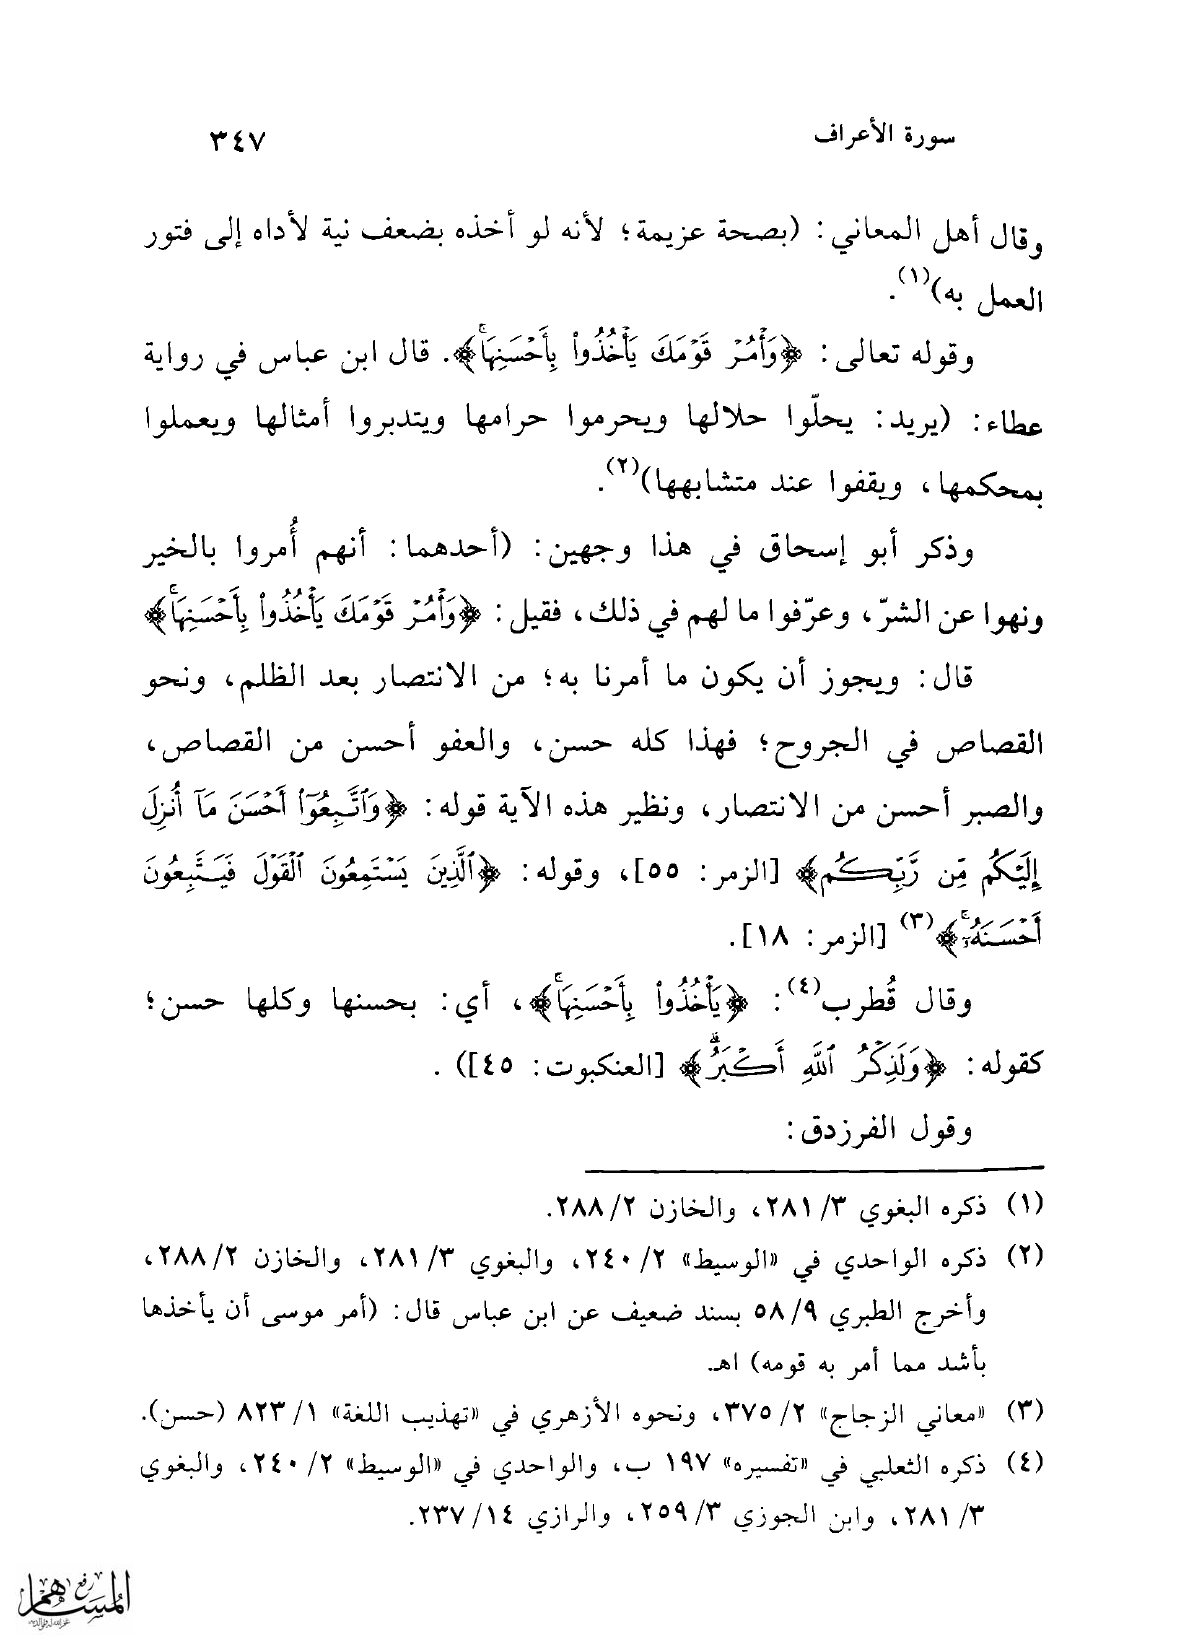 سورة الأعراف ٣٤٧
وقال أهل المعاني: (بصحة عزيمة؛ لأنه لو أخذه بضعف نية لأداه إلى فتور
العمل به)(١).
وقوله تعالى: ﴿وَأْمُرْ قَوْمَكَ يَأْخُذُوا۟ بِأَحْسَنِهَا ۚ﴾. قال ابن عباس في رواية
عطاء: (يريد: يحلّوا حلالها ويحرموا حرامها ويتدبروا أمثالها ويعملوا
بمحكمها، ويقفوا عند متشابهها)(٢).
وذكر أبو إسحاق في هذا وجهين: (أحدهما: أنهم أُمروا بالخير
ونهوا عن الشرّ، وعرّفوا ما لهم في ذلك، فقيل: ﴿وَأْمُرْ قَوْمَكَ يَأْخُذُوا۟ بِأَحْسَنِهَا ۚ﴾
قال: ويجوز أن يكون ما أمرنا به؛ من الانتصار بعد الظلم، ونحو
القصاص في الجروح؛ فهذا كله حسن، والعفو أحسن من القصاص،
والصبر أحسن من الانتصار، ونظير هذه الآية قوله: ﴿وَٱتَّبِعُوٓا۟ أَحْسَنَ مَآ أُنزِلَ
إِلَيْكُم مِّن رَّبِّكُم﴾ [الزمر: ٥٥]، وقوله: ﴿ٱلَّذِينَ يَسْتَمِعُونَ ٱلْقَوْلَ فَيَتَّبِعُونَ
أَحْسَنَهُۥٓ ۚ﴾(٣) [الزمر: ١٨].
وقال قُطرب(٤): ﴿يَأْخُذُوا۟ بِأَحْسَنِهَا ۚ﴾، أي: بحسنها وكلها حسن؛
كقوله: ﴿وَلَذِكْرُ ٱللَّهِ أَكْبَرُ ۗ﴾ [العنكبوت: ٤٥]) .
وقول الفرزدق:
(١) ذكره البغوي ٣/ ٢٨١، والخازن ٢/ ٢٨٨.
(٢) ذكره الواحدي في «الوسيط» ٢/ ٢٤٠، والبغوي ٣/ ٢٨١، والخازن ٢/ ٢٨٨،
وأخرج الطبري ٩/ ٥٨ بسند ضعيف عن ابن عباس قال: (أمر موسى أن يأخذها
بأشد مما أمر به قومه) اهـ.
(٣) «معاني الزجاج» ٢/ ٣٧٥، ونحوه الأزهري في «تهذيب اللغة» ١/ ٨٢٣ (حسن).
(٤) ذكره الثعلبي في «تفسيره» ١٩٧ ب، والواحدي في «الوسيط» ٢/ ٢٤٠، والبغوي
٣/ ٢٨١، وابن الجوزي ٣/ ٢٥٩، والرازي ١٤/ ٢٣٧.